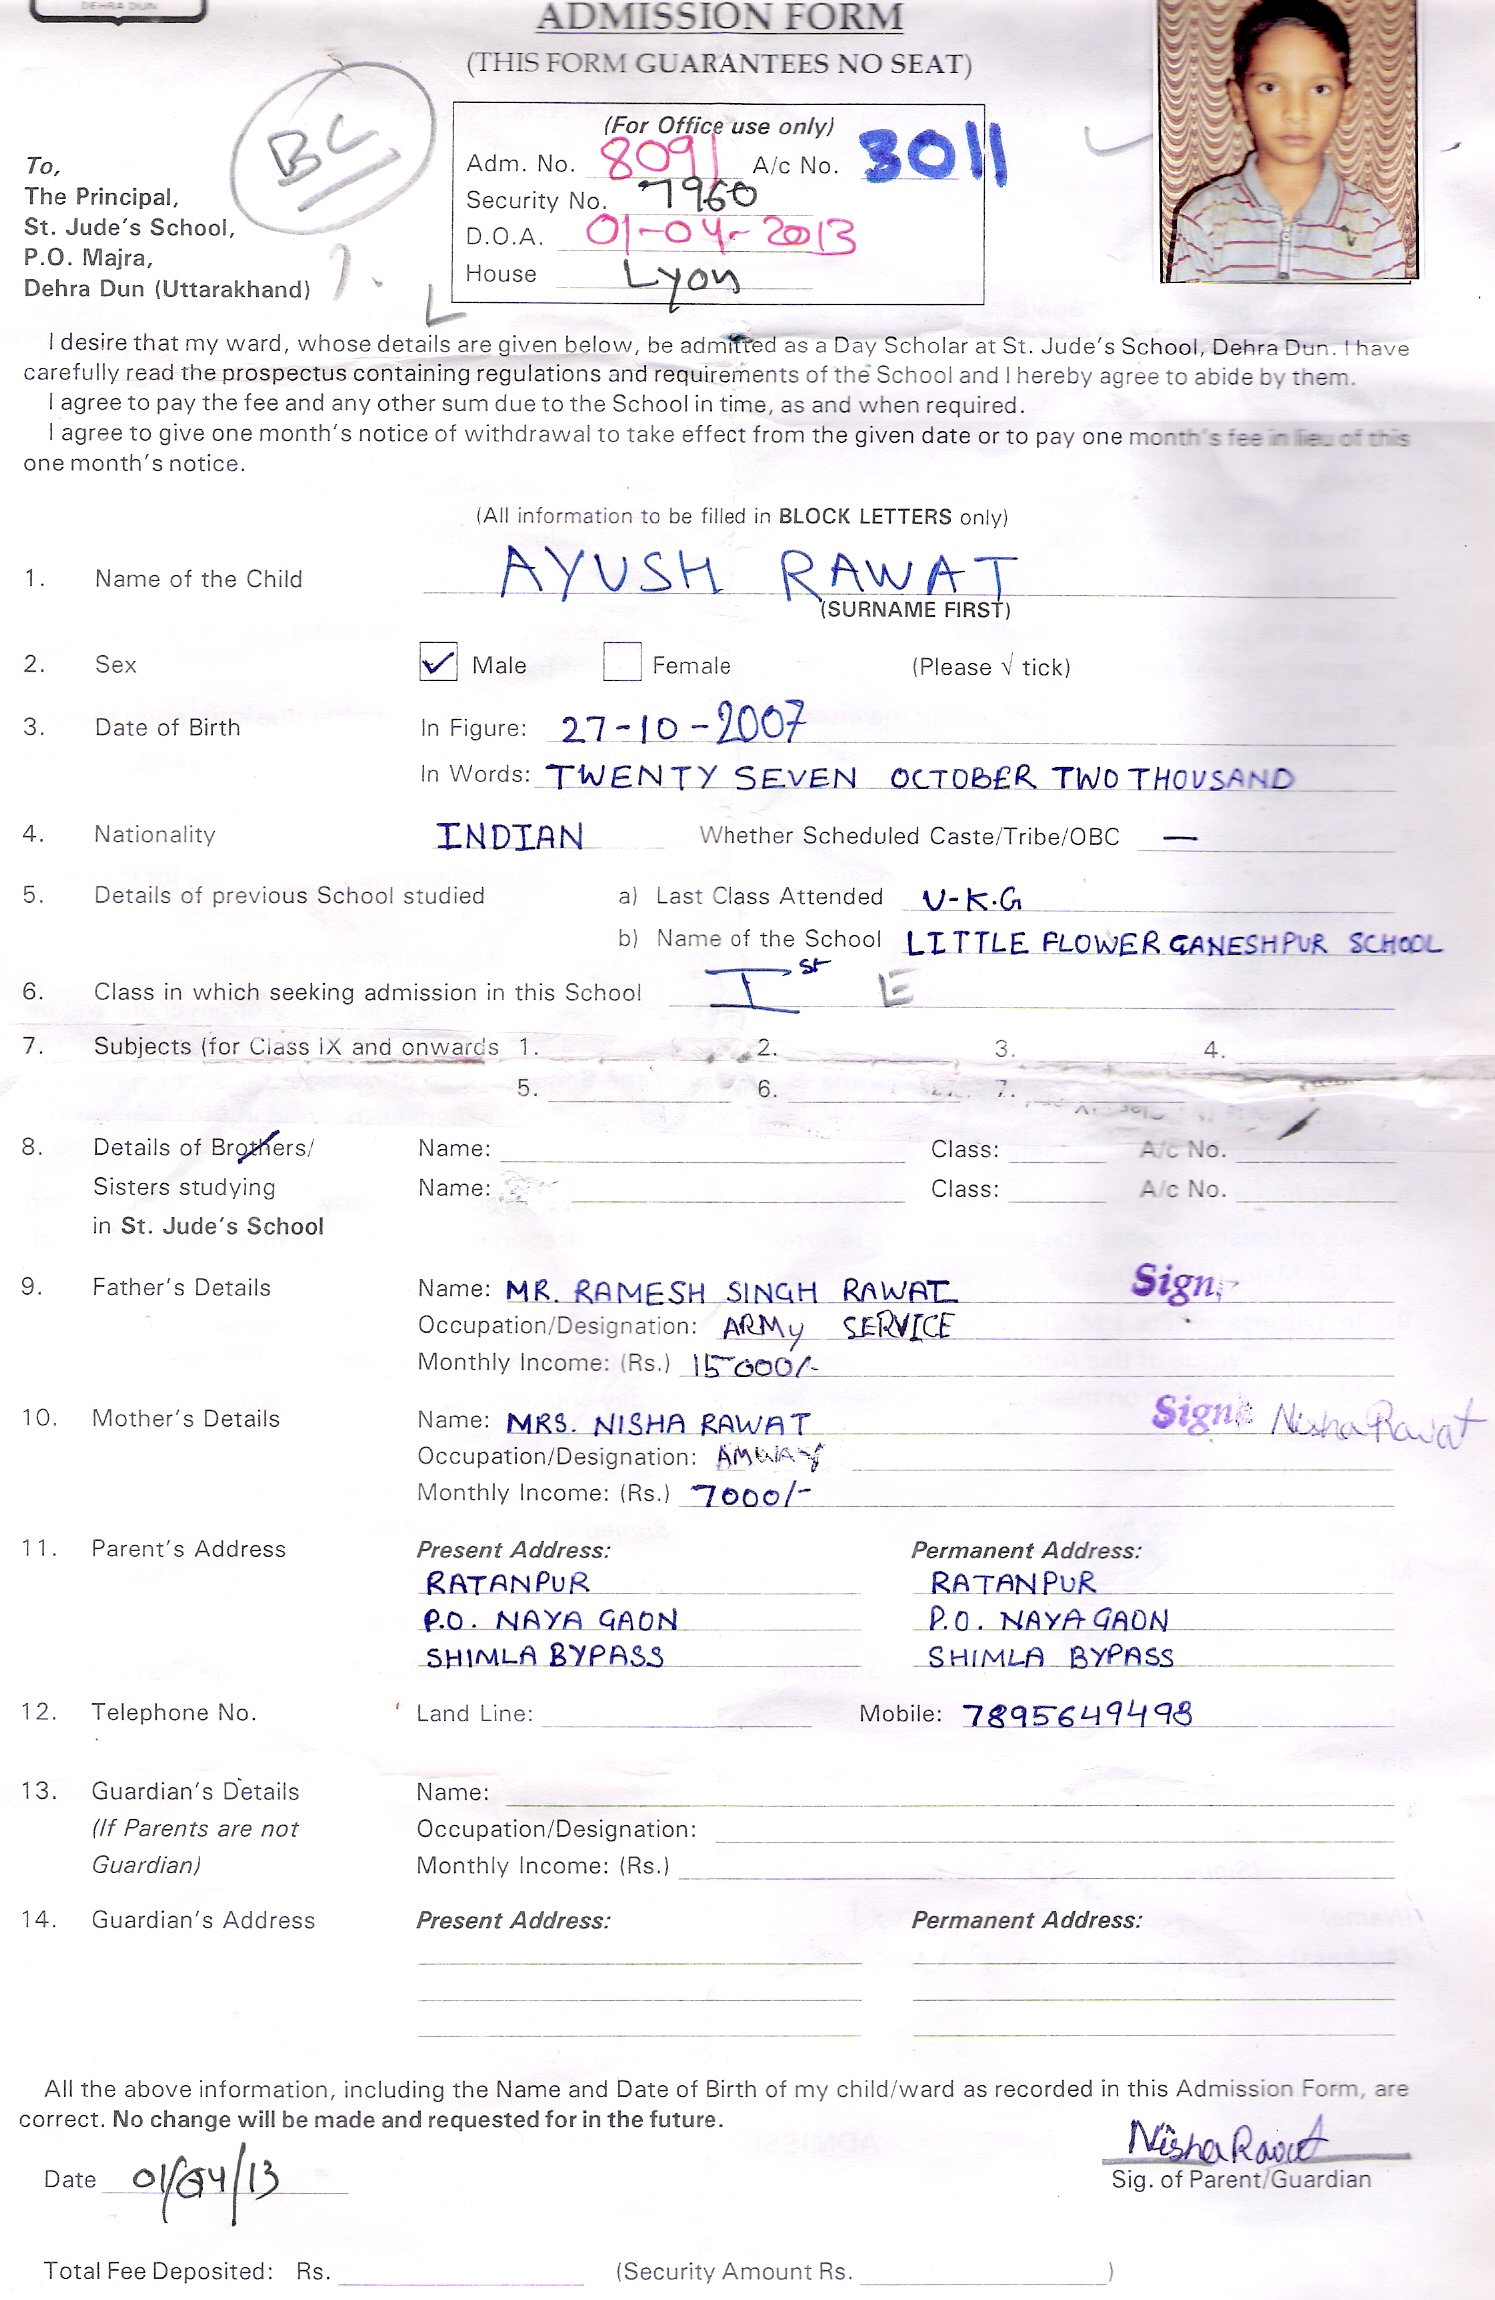 DEHRA DUN
ADMISSION FORM
(THIS FORM GUARANTEES NO SEAT)
BC
(For Office use only)
Adm. No. 8091 A/c No. 3011
Security No. 7960
D.O.A. 01-04-2013
House Lyon
To,
The Principal,
St. Jude's School,
P.O. Majra,
Dehra Dun (Uttarakhand)
I desire that my ward, whose details are given below, be admitted as a Day Scholar at St. Jude's School, Dehra Dun. I have
carefully read the prospectus containing regulations and requirements of the School and I hereby agree to abide by them.
I agree to pay the fee and any other sum due to the School in time, as and when required.
I agree to give one month's notice of withdrawal to take effect from the given date or to pay one month's fee in lieu of this
one month's notice.
(All information to be filled in BLOCK LETTERS only)
1. Name of the Child AYUSH RAWAT
(SURNAME FIRST)
2. Sex ✓ Male Female (Please √ tick)
3. Date of Birth In Figure: 27-10-2007
In Words: TWENTY SEVEN OCTOBER TWO THOUSAND
4. Nationality INDIAN Whether Scheduled Caste/Tribe/OBC —
5. Details of previous School studied a) Last Class Attended U-K.G
b) Name of the School LITTLE FLOWER GANESHPUR SCHOOL
6. Class in which seeking admission in this School Ist E
7. Subjects (for Class IX and onwards 1. 2. 3. 4.
5. 6. 7.
8. Details of Brothers/ Name: Class: A/c No.
Sisters studying Name: Class: A/c No.
in St. Jude's School
9. Father's Details Name: MR. RAMESH SINGH RAWAT Sign.
Occupation/Designation: ARMY SERVICE
Monthly Income: (Rs.) 15000/-
10. Mother's Details Name: MRS. NISHA RAWAT Sign: Nisha Rawat
Occupation/Designation: AMWAY
Monthly Income: (Rs.) 7000/-
11. Parent's Address Present Address: Permanent Address:
RATANPUR RATANPUR
P.O. NAYA GAON P.O. NAYA GAON
SHIMLA BYPASS SHIMLA BYPASS
12. Telephone No. Land Line: Mobile: 7895649498
13. Guardian's Details Name:
(If Parents are not Occupation/Designation:
Guardian) Monthly Income: (Rs.)
14. Guardian's Address Present Address: Permanent Address:
All the above information, including the Name and Date of Birth of my child/ward as recorded in this Admission Form, are
correct. No change will be made and requested for in the future.
Nisha Rawat
Date 01/04/13 Sig. of Parent/Guardian
Total Fee Deposited: Rs. (Security Amount Rs. )